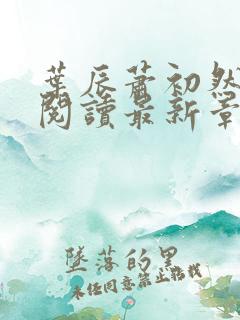 葉辰蕭初然
閱讀最新章
墜落的星
未經同意禁止轉載